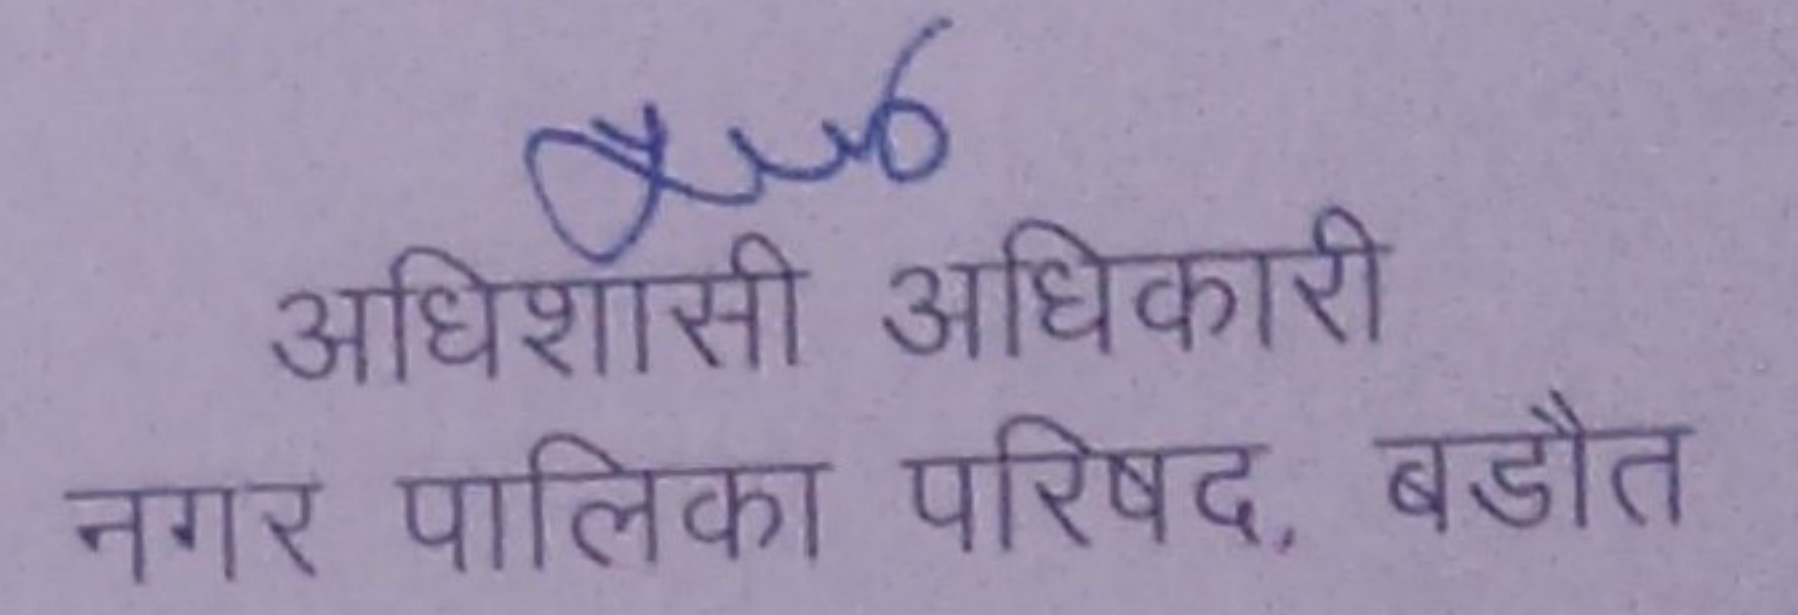 अधिशासी अधिकारी
नगर पालिका परिषद, बडौत